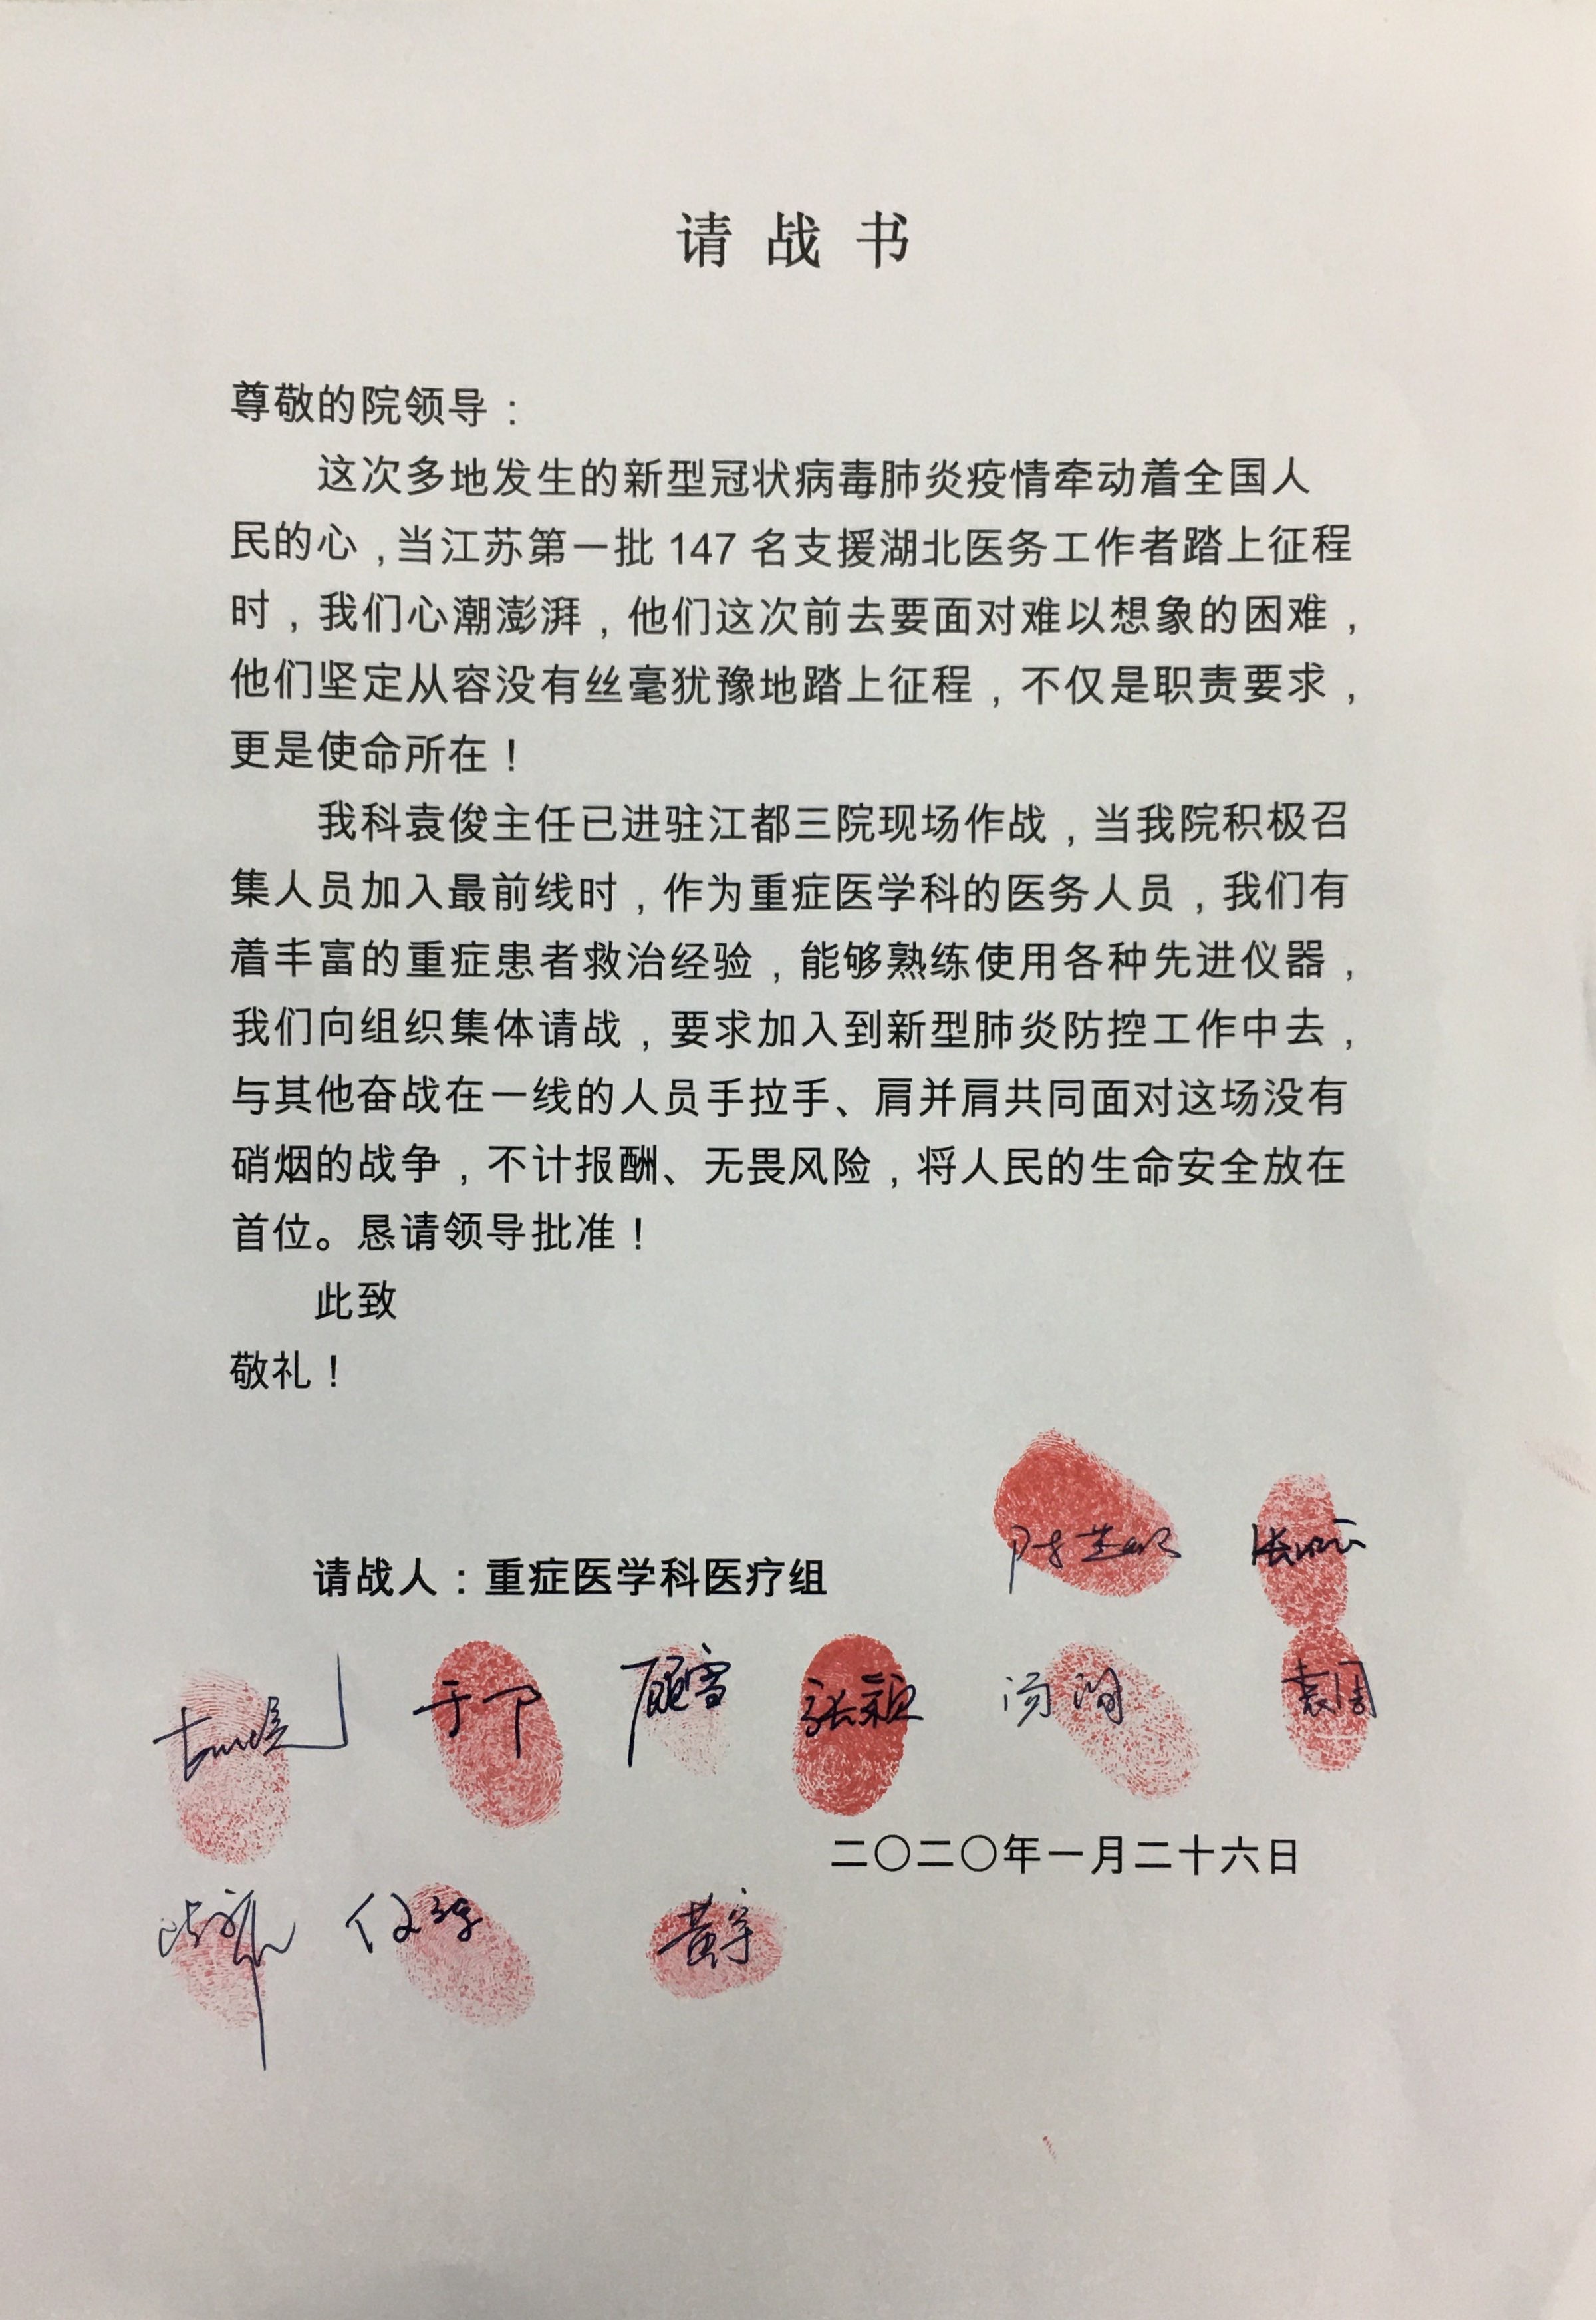 请战书
尊敬的院领导：
这次多地发生的新型冠状病毒肺炎疫情牵动着全国人
民的心，当江苏第一批 147 名支援湖北医务工作者踏上征程
时，我们心潮澎湃，他们这次前去要面对难以想象的困难，
他们坚定从容没有丝毫犹豫地踏上征程，不仅是职责要求，
更是使命所在！
我科袁俊主任已进驻江都三院现场作战，当我院积极召
集人员加入最前线时，作为重症医学科的医务人员，我们有
着丰富的重症患者救治经验，能够熟练使用各种先进仪器，
我们向组织集体请战，要求加入到新型肺炎防控工作中去，
与其他奋战在一线的人员手拉手、肩并肩共同面对这场没有
硝烟的战争，不计报酬、无畏风险，将人民的生命安全放在
首位。恳请领导批准！
此致
敬礼！
请战人：重症医学科医疗组
顾雪 张颖 袁周
二〇二〇年一月二十六日
黄宇